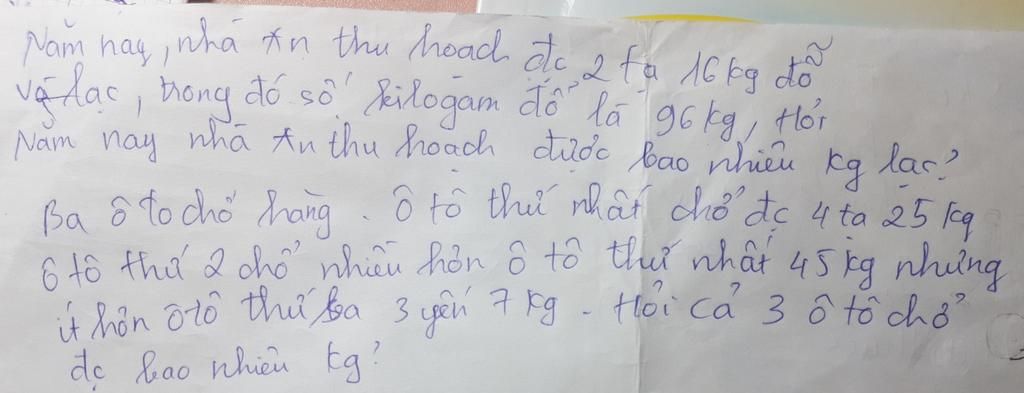 Năm nay, nhà An thu hoạch đc 2 tạ 16kg đỗ
và lạc, trong đó số kilôgam đỗ là 96kg, Hỏi
Năm nay nhà An thu hoạch được bao nhiêu kg lạc?
Ba ô tô chở hàng. Ô tô thứ nhất chở đc 4 tạ 25kg
ô tô thứ 2 chở nhiều hơn ô tô thứ nhất 45kg nhưng
ít hơn ô tô thứ ba 3 yến 7kg. Hỏi cả 3 ô tô chở
đc bao nhiêu kg?